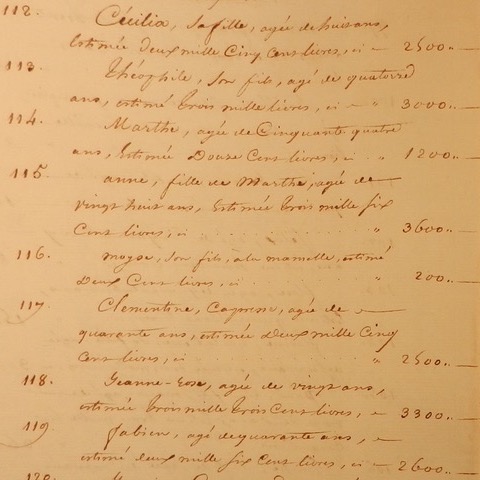 112. Cécilia, sa fille, agée de huit ans,
Estimée Deux mille Cinq Cent livres, ci — 2500..—
113. Théophile, son fils, agé de quatorze
ans, estimé Trois mille livres, ci — " 3000..—
114. Marthe, agée de Cinquante quatre
ans, Estimée Douze Cent livres, ci .. " 1200..—
115. anne, fille de Marthe, agée de —
vingt huit ans, Estimée Trois mille Six
Cent livres, ci . . . . . . . " 3600..—
116. moyse, son fils, a la mamelle, estimé
Deux Cent livres, ci . . . . . " 200..—
117. Clementine, Capresse, agée de —
quarante ans, estimée Deux mille Cinq
Cent livres, ci . . . . . " 2500..—
118. Jeanne-Rose, agée de vingt ans,
estimée Trois mille Trois Cent livres, — 3300..—
119. fabien, agé de quarante ans, —
estimé deux mille Six Cent livres, ci — 2600..—
120.